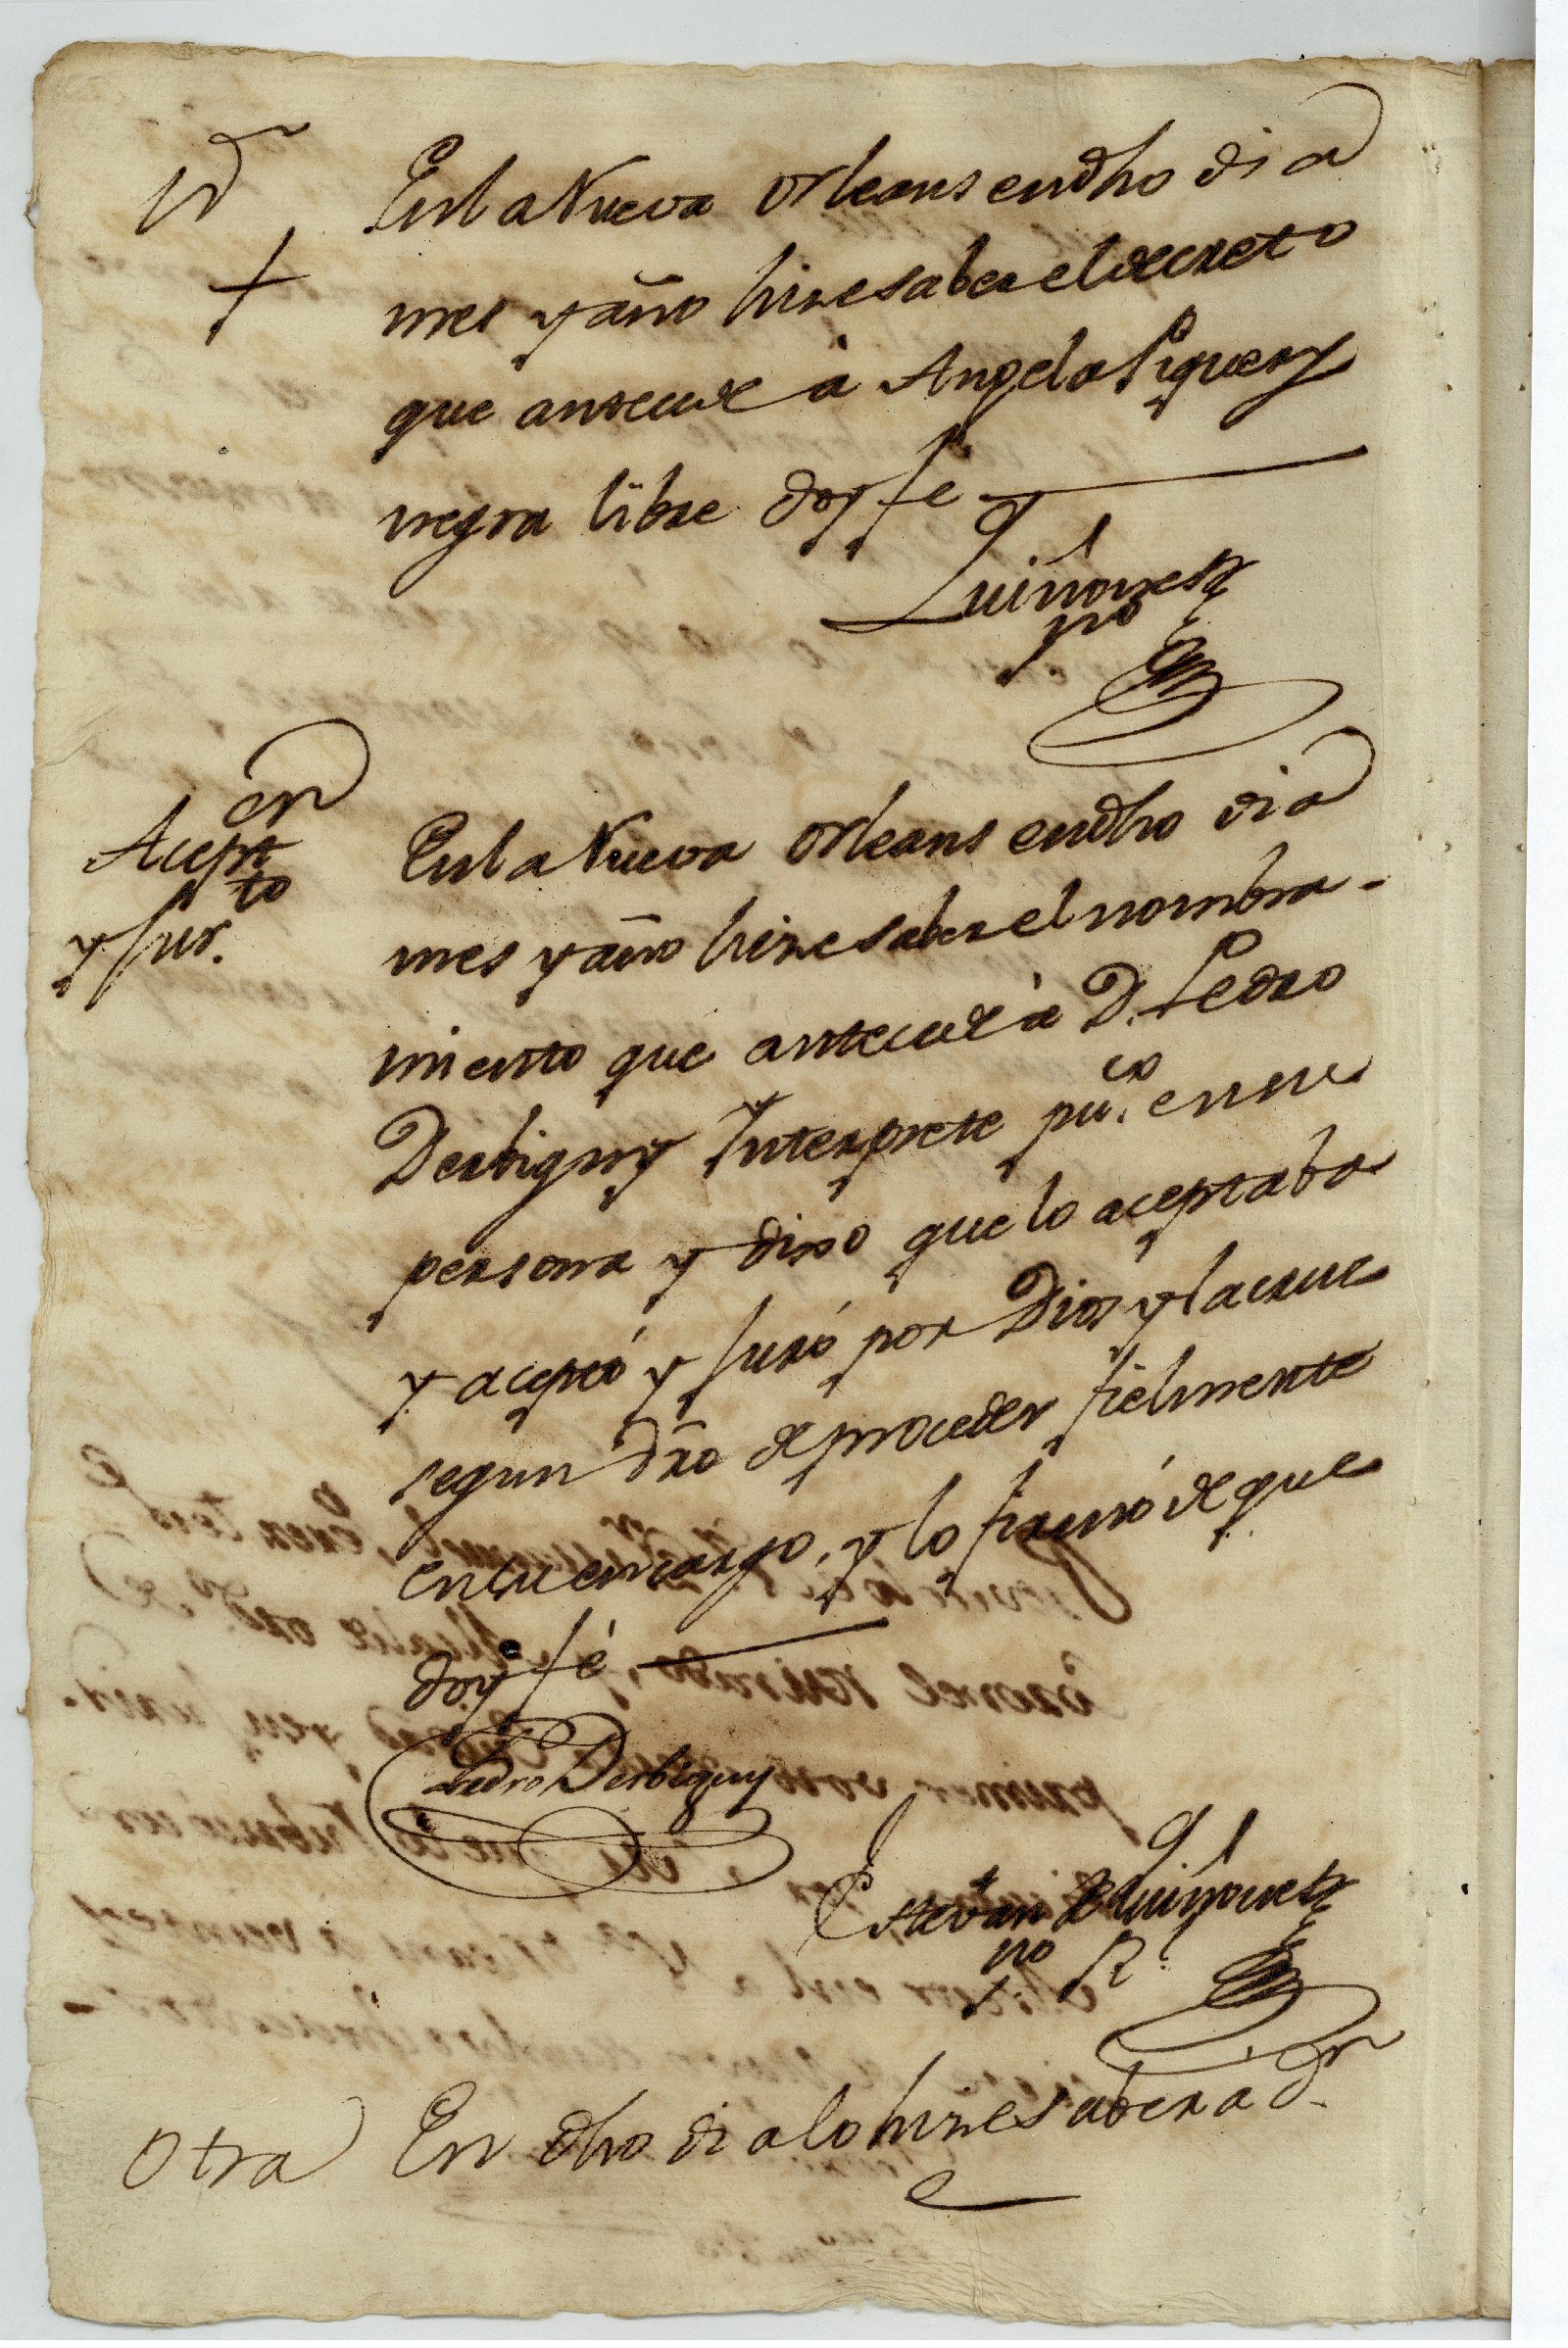 Nn
En la Nueva Orleans en dho dia
mes y año hize saber el decreto
que antecede à Angela Piquery
negra libre doy fe
Quiñones
no
Acept.on
y Jur.to
En la Nueva Orleans en dho dia
mes y año hize saber el nombra-
miento que antecede à D. Pedro
Derbigny Interprete pu.co en su
persona y dixo que lo aceptaba
y aceptó y Juró por Dios y la cruz
segun dro de proceder fielmente
en su encargo, y lo firmó de que
doy fé
Pedro Derbigny
Estevan de Quiñones
no
Otra
En dho dia lo hize saber a d.